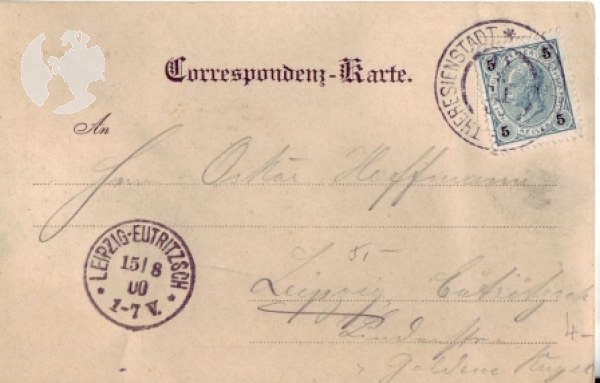 Correspondenz-Karte.
THERESIENSTADT *
5 5
5 5
An
Herrn Oskar Hoffmann
* LEIPZIG-EUTRITZSCH *
15/8
00
1-7 V.
5,-
Leipzig, Eutritzsch
4-
Goldene Kugel